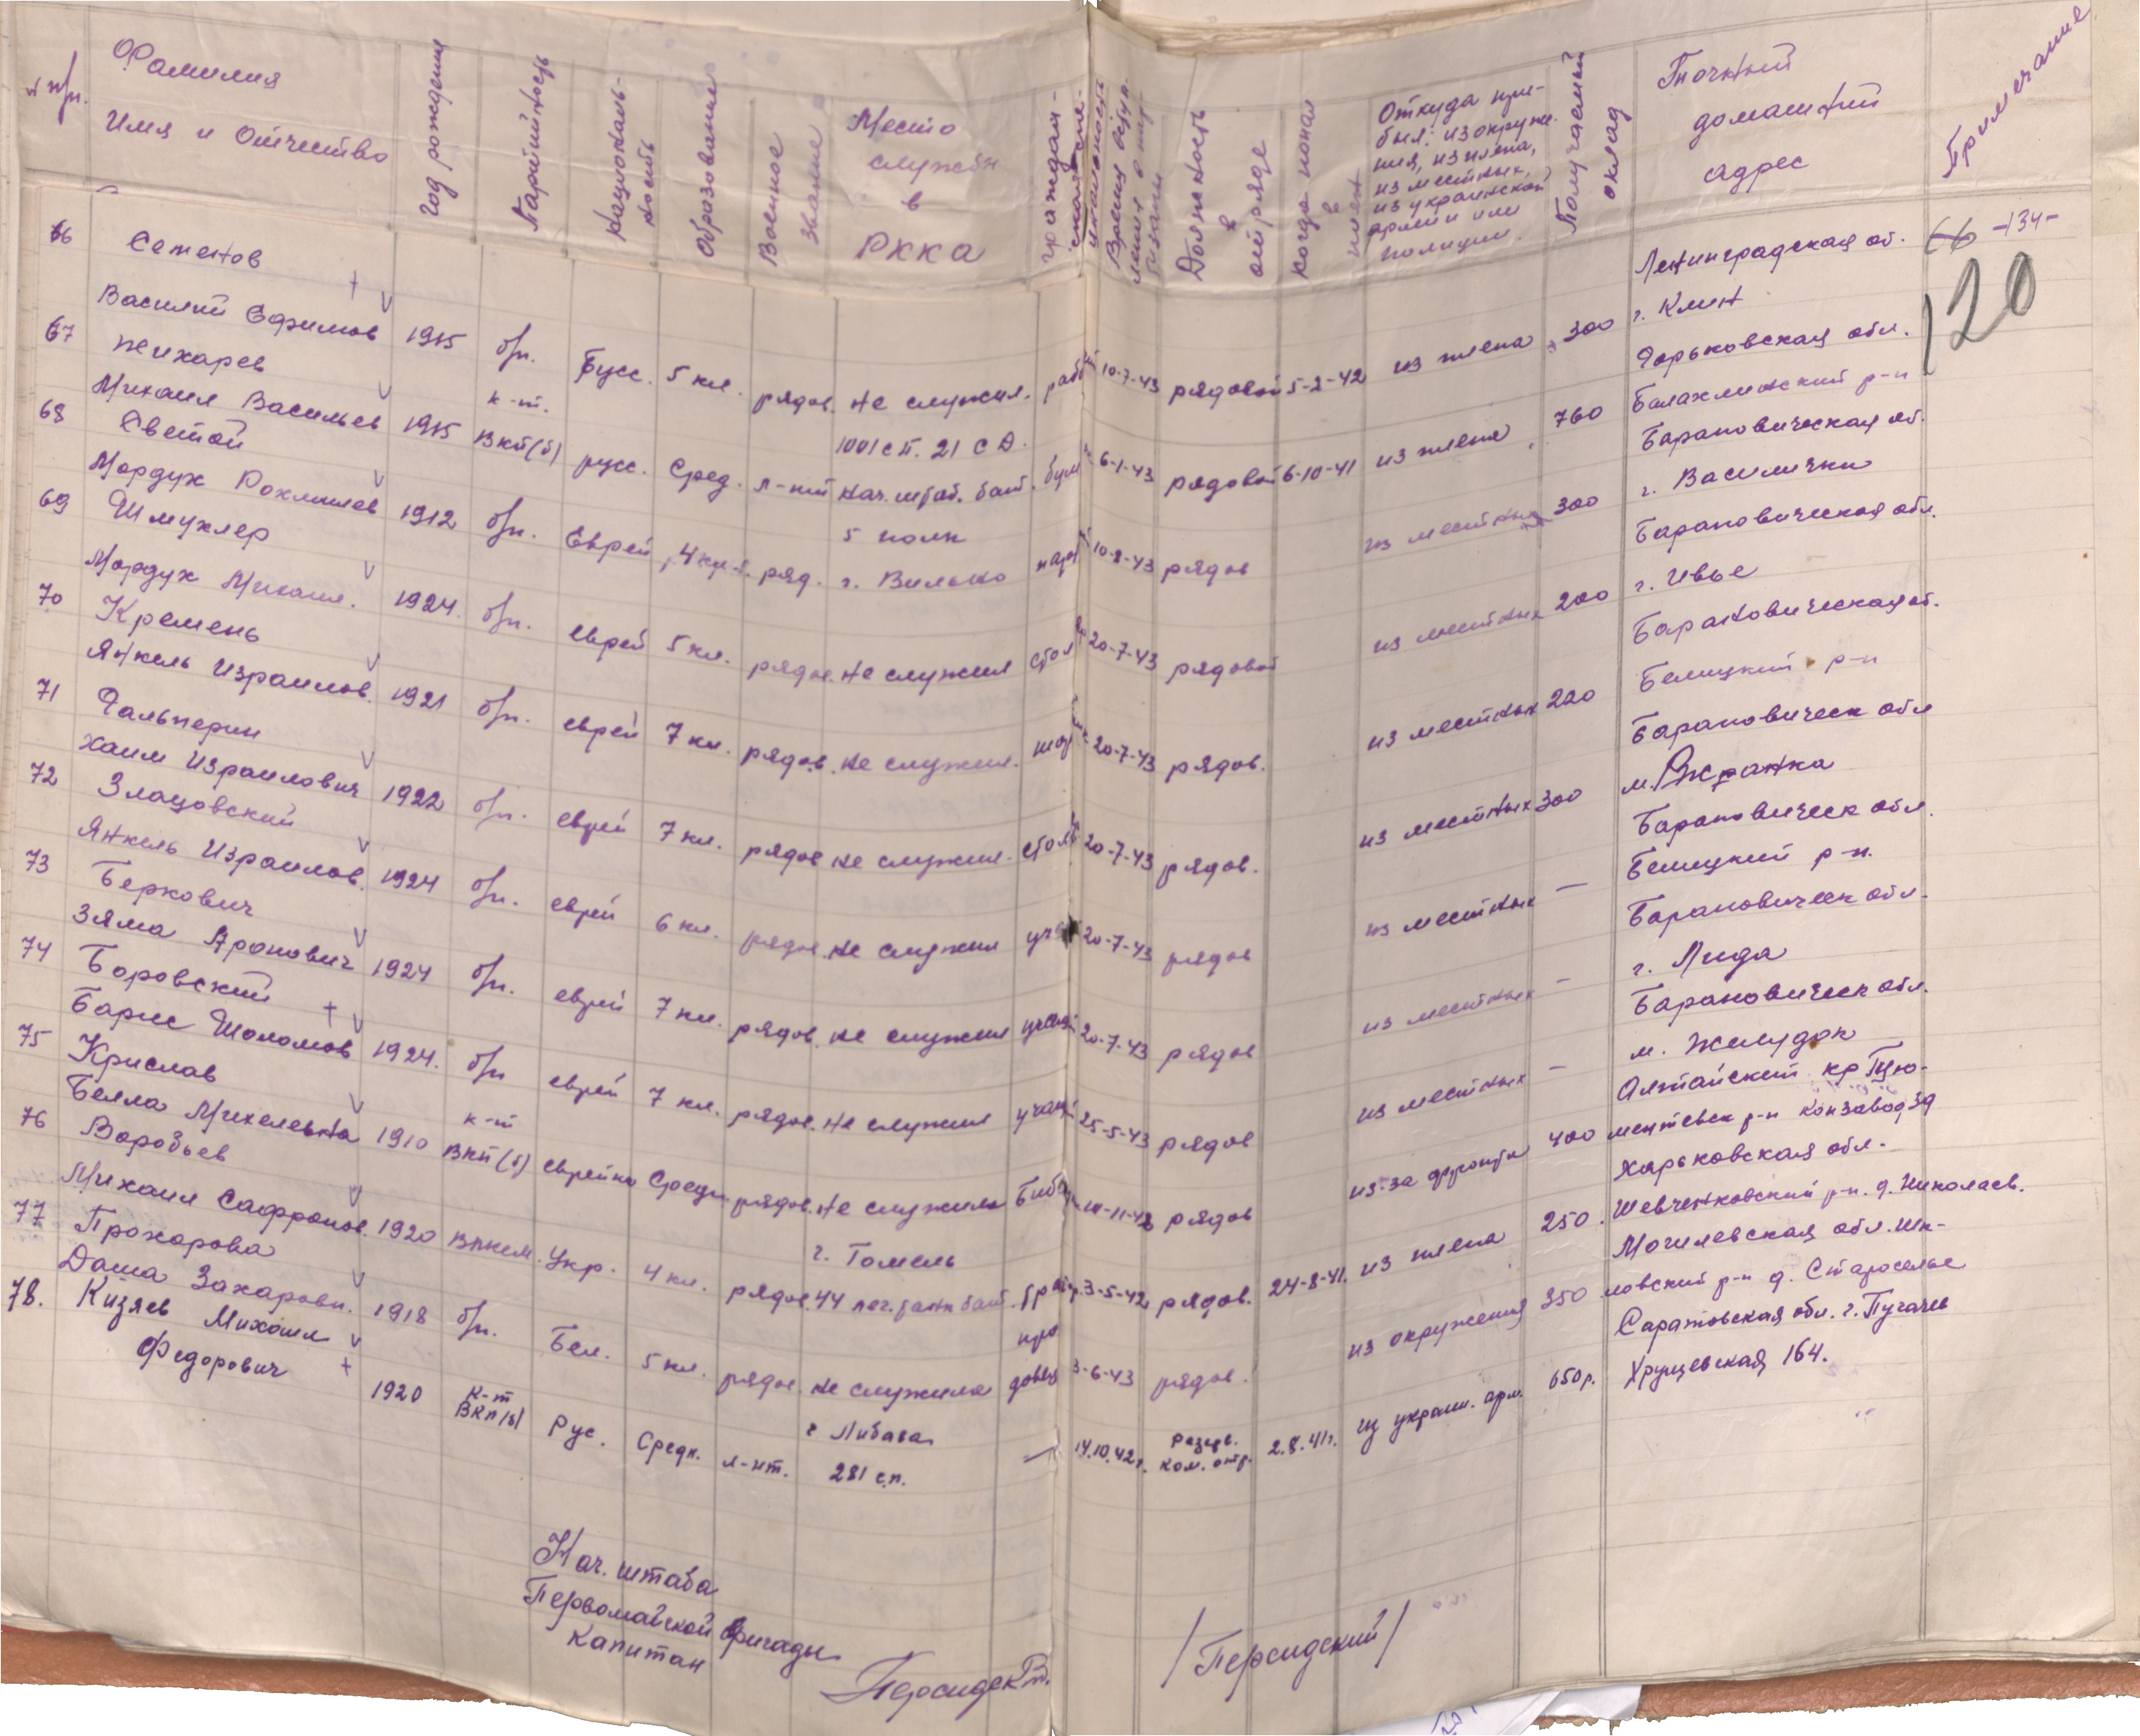 № п/п.
Фамилия
Имя и Отчество
год рождения
Партийность
Национальность
Образование
Военное звание
Место службы в РККА
гражданская специальность
Время вступления в партизаны
Должность в отряде
когда попал в плен
Откуда прибыл: из окружения, из плена, из местных, из украинской армии или полиции.
Получаемый оклад
Точный домашний адрес
Примечание
66 -134-
120
66 Семенов
Василий Ефимов 1915 б/п. Русс. 5 кл. рядов. не служил. рабоч 10-7-43 рядовой 5-2-42 из плена 300 Ленинградская об. г. Клин
67 Пихарев
Михаил Васильев 1915 к-т. ВКП(б) русс. Сред. л-нт 1001 с п. 21 с д. нач. штаб. бат. бух 6-1-43 рядовой 6-10-41 из плена 760 Горьковская обл. Балахминский р-н
68 Светой
Мордух Рохмилев 1912 б/п. Еврей 4 кл. ряд. 5 полк г. Вильно 10-8-43 рядов из местных 300 Барановическая об. г. Василички
69 Шмуклер
Мордух Михаил. 1924. б/п. еврей 5 кл. рядов. не служил стол 20-7-43 рядовой из местных 200 Барановическая обл. г. Ивье
70 Кремень
Янкель Израилов. 1921 б/п. еврей 7 кл. рядов. не служил. 20-7-43 рядов. из местных 220 Барановическая об. Белицкий р-н
71 Гальперин
Хаим Израилович 1922 б/п. еврей 7 кл. рядов не служил. столяр 20-7-43 рядов. из местных 300 Барановическ обл м.
72 Злацовский
Янкель Израилов. 1924 б/п. еврей 6 кл. рядов. не служил уч 20-7-43 рядов из местных — Барановическ обл. Белицкий р-н.
73 Беркович
Зяма Аронович 1924 б/п. еврей 7 кл. рядов. не служил учащ 20-7-43 рядов из местных — Барановическ обл. г. Лида
74 Боровский
Барис Шоломов 1924. б/п еврей 7 кл. рядов. не служил учащ 25-5-43 рядов из местных — Барановическ обл. м. Желудок
75 Крислав
Белла Михелевна 1910 к-т ВКП(б) еврейка Средн рядов. не служила Библ 10-11-42 рядов из-за фронта 400 Алтайский кр Тюментевск р-н конзавод 39
76 Воробьев
Михаил Сафронов. 1920 ВЛКСМ. Укр. 4 кл. рядов г. Гомель 44 лег. танк бат. 3-5-42 рядов. 24-8-41. из плена 250. Харьковская обл. Шевченковский р-н. д. Николаев.
77 Прохорова
Даша Захаровн. 1918 б/п. Бел. 5 кл. рядов. не служила продавец 3-6-43 рядов. из окружения 350 Могилевская обл. Шкловский р-н д. Староселье
78. Кизяев Михаил
Федорович 1920 К-т ВКП/б/ Рус. Средн. л-нт. г Либава 281 сп. — 14.10.42г. Резерв. ком. отр. 2.8.41г. из украин. арм. 650р. Саратовская обл. г. Пугачев Хрущевская 164.
Нач. штаба
Первомайской бригады
капитан
/Персидский/